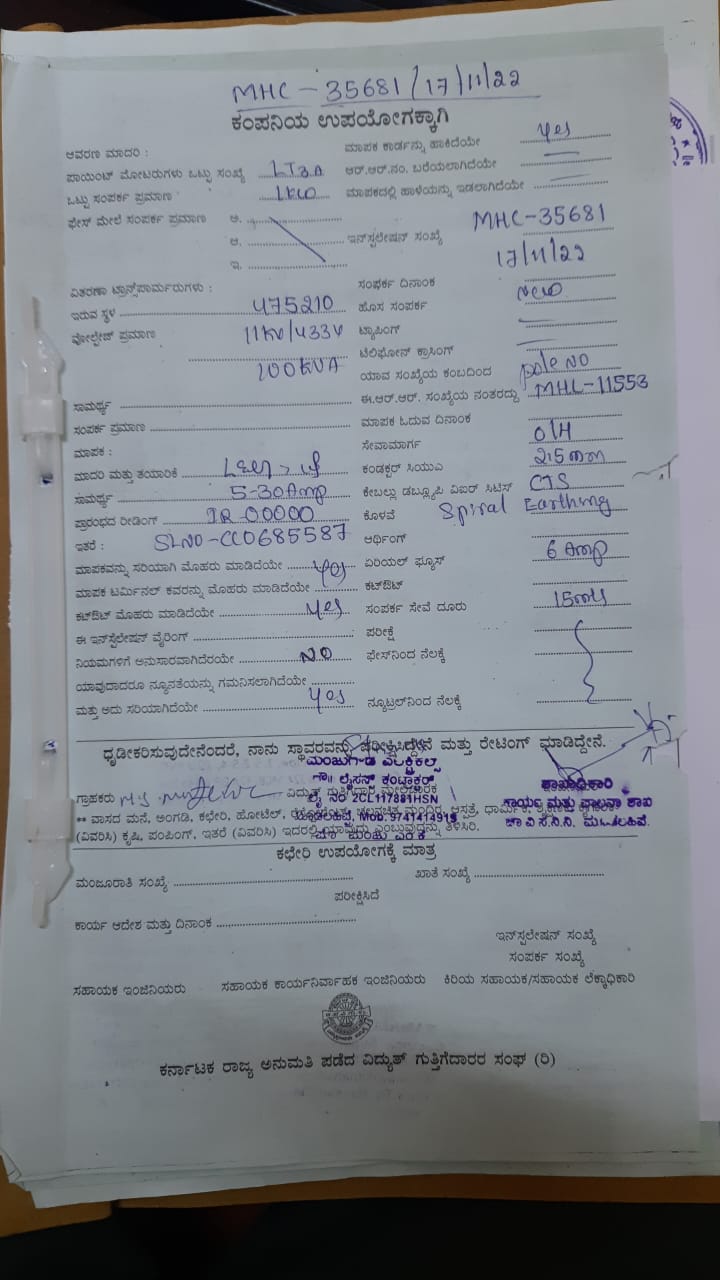 MHC - 35681/17/11/22
ಕಂಪನಿಯ ಉಪಯೋಗಕ್ಕಾಗಿ
ಆವರಣ ಮಾದರಿ :
ಮಾಪಕ ಕಾರ್ಡನ್ನು ಹಾಕಿದೆಯೇ yes
ಪಾಯಿಂಟ್ ಮೋಟರುಗಳು ಒಟ್ಟು ಸಂಖ್ಯೆ LT3A
ಆರ್.ಆರ್.ನಂ. ಬರೆಯಲಾಗಿದೆಯೇ
ಒಟ್ಟು ಸಂಪರ್ಕ ಪ್ರಮಾಣ 1KW
ಮಾಪಕದಲ್ಲಿ ಹಾಳೆಯನ್ನು ಇಡಲಾಗಿದೆಯೇ
ಫೇಸ್ ಮೇಲೆ ಸಂಪರ್ಕ ಪ್ರಮಾಣ ಅ.
ಆ.
ಇನ್‌ಸ್ಟಲೇಷನ್ ಸಂಖ್ಯೆ MHC-35681
ಇ.
ವಿತರಣಾ ಟ್ರಾನ್ಸ್‌ಪಾರ್ಮರುಗಳು :
ಸಂಪರ್ಕ ದಿನಾಂಕ 17/11/22
ಇರುವ ಸ್ಥಳ 475210
ಹೊಸ ಸಂಪರ್ಕ New
ವೋಲ್ಟೇಜ್ ಪ್ರಮಾಣ 11KV/433V
ಟ್ಯಾಪಿಂಗ್
100KVA
ಟೆಲಿಫೋನ್ ಕ್ರಾಸಿಂಗ್
ಯಾವ ಸಂಖ್ಯೆಯ ಕಂಬದಿಂದ pole NO
ಸಾಮರ್ಥ್ಯ
ಈ.ಆರ್.ಆರ್. ಸಂಖ್ಯೆಯ ನಂತರದ್ದು MHL-11553
ಸಂಪರ್ಕ ಪ್ರಮಾಣ
ಮಾಪಕ ಓದುವ ದಿನಾಂಕ
ಮಾಪಕ :
ಸೇವಾಮಾರ್ಗ O/H
ಮಾದರಿ ಮತ್ತು ತಯಾರಿಕೆ
ಕಂಡಕ್ಟರ್ ಸಿಯುವಿ 2.5mm
ಸಾಮರ್ಥ್ಯ 5-30Amp
ಕೇಬಲ್ಲು ಡಬ್ಲ್ಯೂಪಿ ವಿಐರ್ ಸಿಟಿಸ್ CTS
ಪ್ರಾರಂಭದ ರೀಡಿಂಗ್ IR 00000
ಕೊಳವೆ Spiral Earthing
ಇತರೆ : SLNO-CC0685587
ಆರ್ಥಿಂಗ್
ಮಾಪಕವನ್ನು ಸರಿಯಾಗಿ ಮೊಹರು ಮಾಡಿದೆಯೇ yes
ಏರಿಯಲ್ ಫ್ಯೂಸ್ 6 Amp
ಮಾಪಕ ಟರ್ಮಿನಲ್ ಕವರನ್ನು ಮೊಹರು ಮಾಡಿದೆಯೇ
ಕಟ್‌ಔಟ್
ಕಟ್‌ಔಟ್ ಮೊಹರು ಮಾಡಿದೆಯೇ yes
ಸಂಪರ್ಕ ಸೇವೆ ದೂರು 15mts
ಈ ಇನ್‌ಸ್ಟಲೇಷನ್ ವೈರಿಂಗ್
ಪರೀಕ್ಷೆ
ನಿಯಮಗಳಿಗೆ ಅನುಸಾರವಾಗಿದೆರಯೇ NO
ಫೇಸ್‌ನಿಂದ ನೆಲಕ್ಕೆ
ಯಾವುದಾದರೂ ನ್ಯೂನತೆಯನ್ನು ಗಮನಿಸಲಾಗಿದೆಯೇ
ಮತ್ತು ಅದು ಸರಿಯಾಗಿದೆಯೇ yes
ನ್ಯೂಟ್ರಲ್‌ನಿಂದ ನೆಲಕ್ಕೆ
ಧೃಡೀಕರಿಸುವುದೇನೆಂದರೆ, ನಾನು ಸ್ಥಾವರವನ್ನು ಪರೀಕ್ಷಿಸಿದ್ದೇನೆ ಮತ್ತು ರೇಟಿಂಗ್ ಮಾಡಿದ್ದೇನೆ.
ಲೈಸನ್ಸ್ ಕಂಟ್ರಾಕ್ಟರ್
ಗ್ರಾಹಕರು ವಿದ್ಯುತ್ ಗುತ್ತಿಗೆದಾರ ಮೇಲ್ವಿಚಾರಕ
NO 2CL117881HSN
Mob.9741414915
** ವಾಸದ ಮನೆ, ಅಂಗಡಿ, ಕಛೇರಿ, ಹೋಟೆಲ್, ಚಲನಚಿತ್ರ ಮಂದಿರ, ಆಸ್ಪತ್ರೆ, ಧಾರ್ಮಿಕ,
(ವಿವರಿಸಿ) ಕೃಷಿ, ಪಂಪಿಂಗ್, ಇತರೆ (ವಿವರಿಸಿ) ಇದರಲ್ಲಿ ಯಾವುದು ಎಂಬುವುದನ್ನು ತಿಳಿಸಿರಿ.
ಕಛೇರಿ ಉಪಯೋಗಕ್ಕೆ ಮಾತ್ರ
ಮಂಜೂರಾತಿ ಸಂಖ್ಯೆ
ಖಾತೆ ಸಂಖ್ಯೆ
ಪರೀಕ್ಷಿಸಿದೆ
ಕಾರ್ಯ ಆದೇಶ ಮತ್ತು ದಿನಾಂಕ
ಇನ್‌ಸ್ಟಲೇಷನ್ ಸಂಖ್ಯೆ
ಸಂಪರ್ಕ ಸಂಖ್ಯೆ
ಸಹಾಯಕ ಇಂಜಿನಿಯರು ಸಹಾಯಕ ಕಾರ್ಯನಿರ್ವಾಹಕ ಇಂಜಿನಿಯರು ಕಿರಿಯ ಸಹಾಯಕ/ಸಹಾಯಕ ಲೆಕ್ಕಾಧಿಕಾರಿ
ಕರ್ನಾಟಕ ರಾಜ್ಯ ಅನುಮತಿ ಪಡೆದ ವಿದ್ಯುತ್ ಗುತ್ತಿಗೆದಾರರ ಸಂಘ (ರಿ)